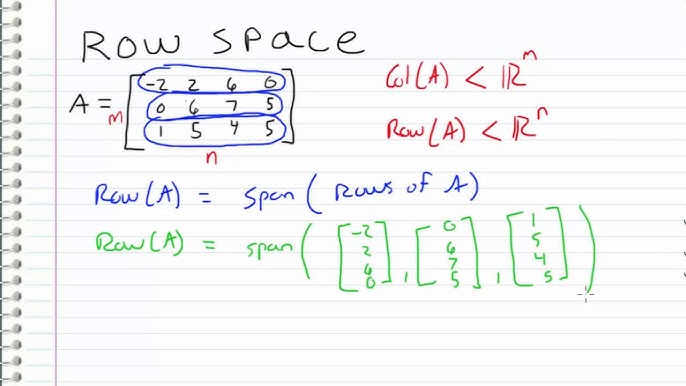 Row space
A = m [ -2 2 6 0
0 6 7 5
1 5 4 5 ]
n
Col(A) < ℝ^m
Row(A) < ℝ^n
Row(A) = span( Rows of A)
Row(A) = span( [ -2 2 6 0 ] , [ 0 6 7 5 ] , [ 1 5 4 5 ] )